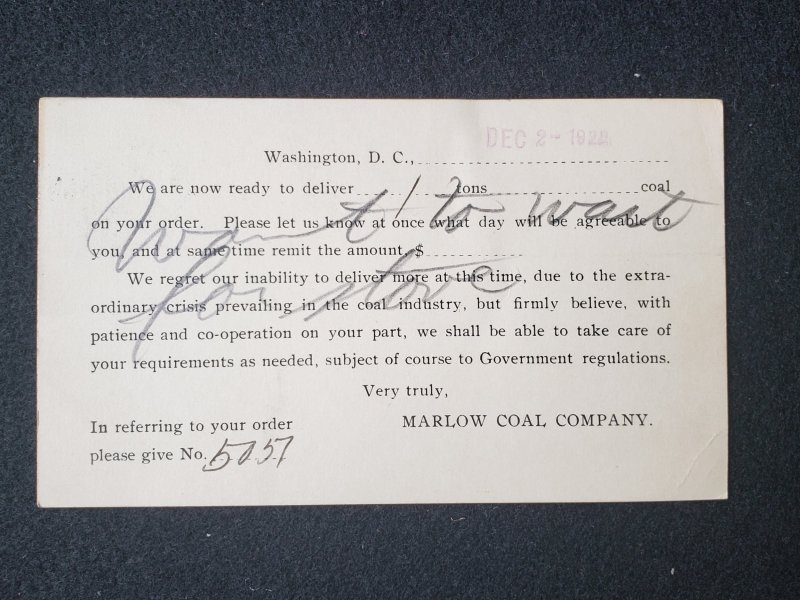 DEC 2- 1922
Washington, D. C.,
We are now ready to deliver 1 tons coal
on your order. Please let us know at once what day will be agreeable to
you, and at same time remit the amount, $
Want to wait
for stove
We regret our inability to deliver more at this time, due to the extra-
ordinary crisis prevailing in the coal industry, but firmly believe, with
patience and co-operation on your part, we shall be able to take care of
your requirements as needed, subject of course to Government regulations.
Very truly,
In referring to your order
MARLOW COAL COMPANY.
please give No. 5057